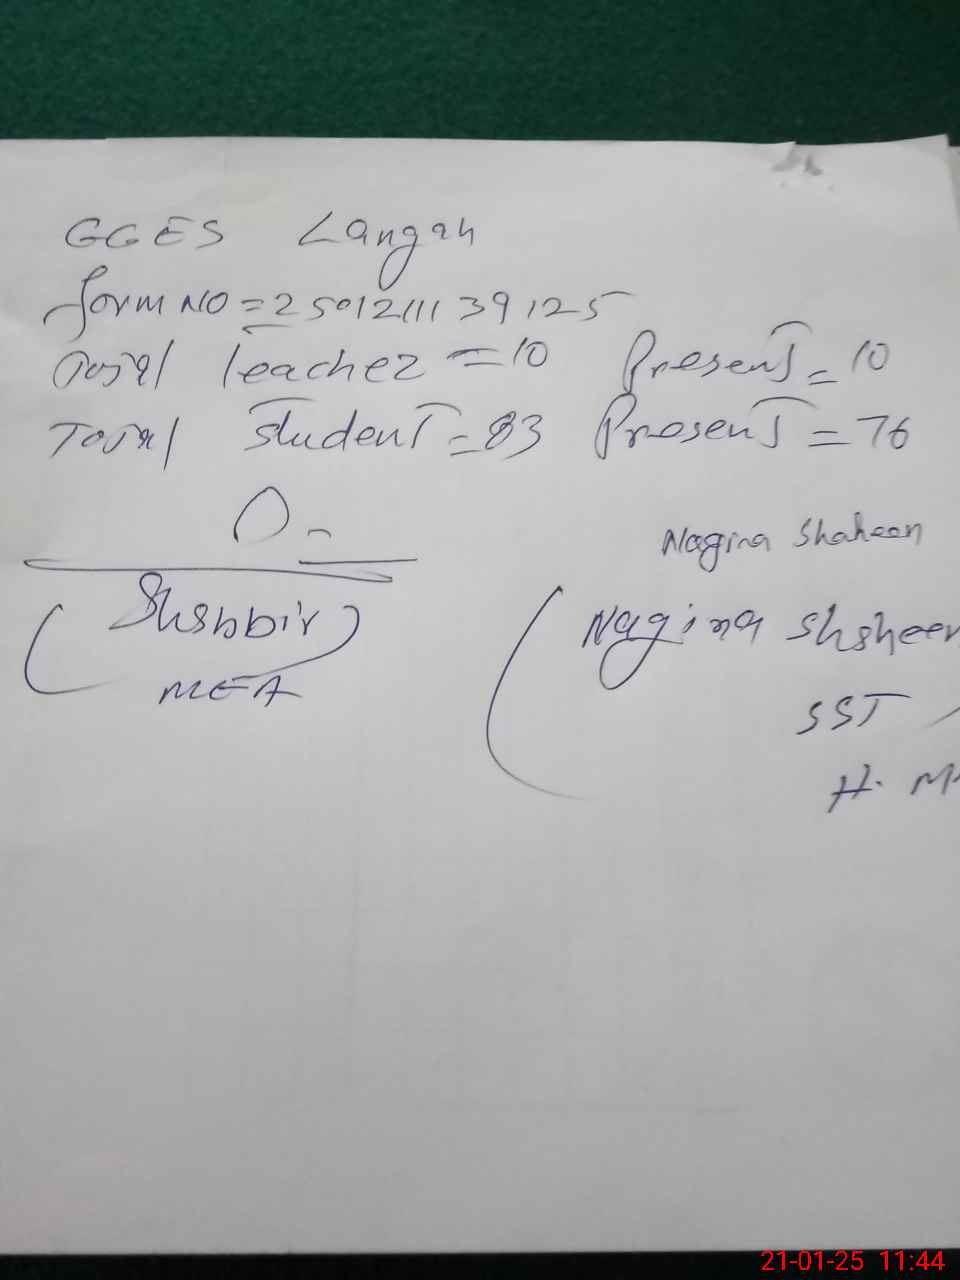 GGES Langah
form NO = 2501211139125
Total Teacher = 10 Present = 10
Total Student = 83 Present = 76
Nagina Shaheen
(Shabbir)
MEA
(Nagina Shaheen
SST
H.
21-01-25 11:44